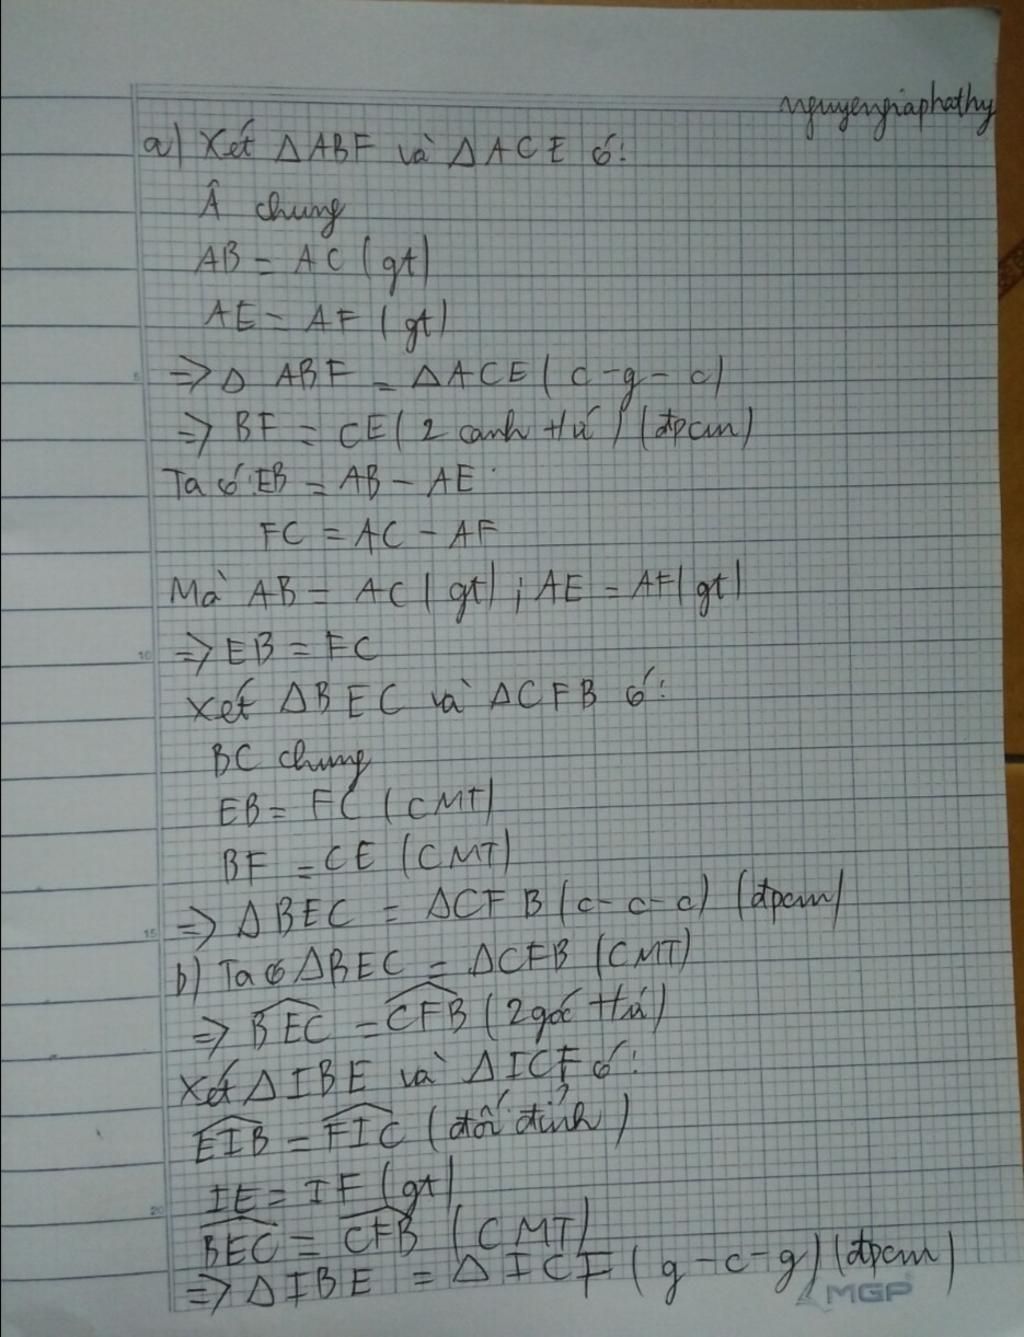 nguyengiaphathy
a) Xét ΔABF và ΔACE có:
Â chung
AB = AC (gt)
AE = AF (gt)
=> Δ ABF = ΔACE (c-g-c)
=> BF = CE (2 cạnh tứ) (đpcm)
Ta có: EB = AB - AE
FC = AC - AF
Mà AB = AC (gt) ; AE = AF (gt)
=> EB = FC
Xét ΔBEC và ΔCFB có:
BC chung
EB = FC (CMT)
BF = CE (CMT)
=> ΔBEC = ΔCFB (c-c-c) (đpcm)
b) Ta có ΔBEC = ΔCFB (CMT)
=> BEC = CFB (2 góc tứ)
Xét ΔIBE và ΔICF có:
EIB = FIC (đối đỉnh)
IE = IF (gt)
BEC = CFB (CMT)
=> ΔIBE = ΔICF (g-c-g) (đpcm)
MGP
5
10
15
20